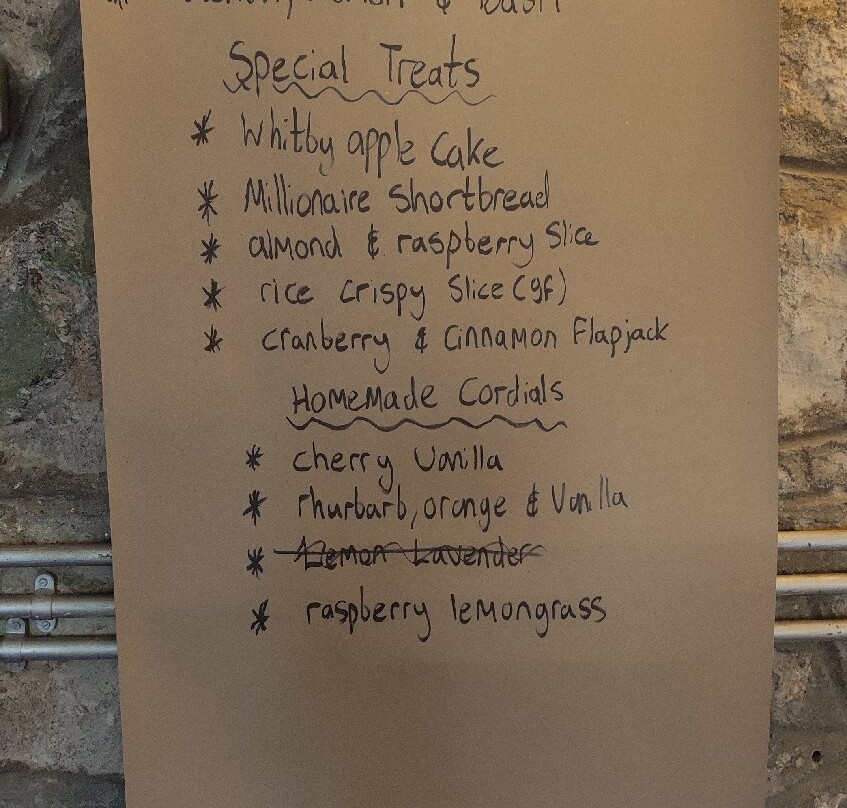 &
Special Treats
* Whitby apple Cake
* Millionaire Shortbread
* almond & raspberry Slice
* rice crispy Slice (gf)
* cranberry & Cinnamon Flapjack
Homemade Cordials
* cherry Vanilla
* rhurbarb, orange & Vanilla
* Lemon Lavender
* raspberry lemongrass